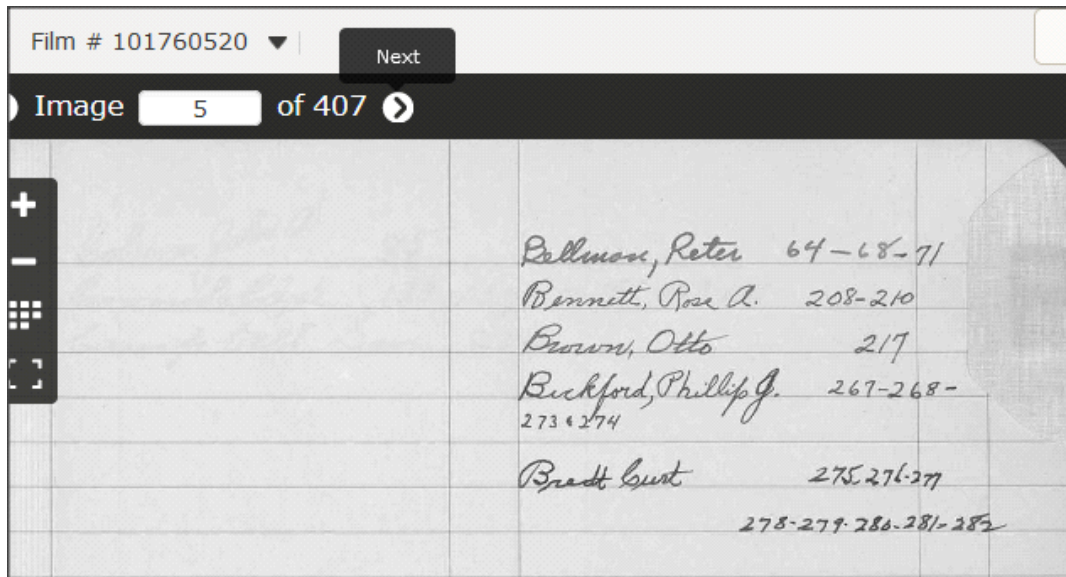 Film # 101760520
Next
Image 5 of 407
Bellman, Peter 64-68-71
Bennett, Rose A. 208-210
Brown, Otto 217
Bickford, Phillip J. 267-268-
273 & 274
Bradt Curt 275.276-277
278-279-280-281-282